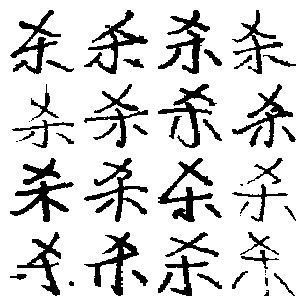 杀杀杀杀
杀杀杀杀
杀杀杀杀
杀杀杀杀